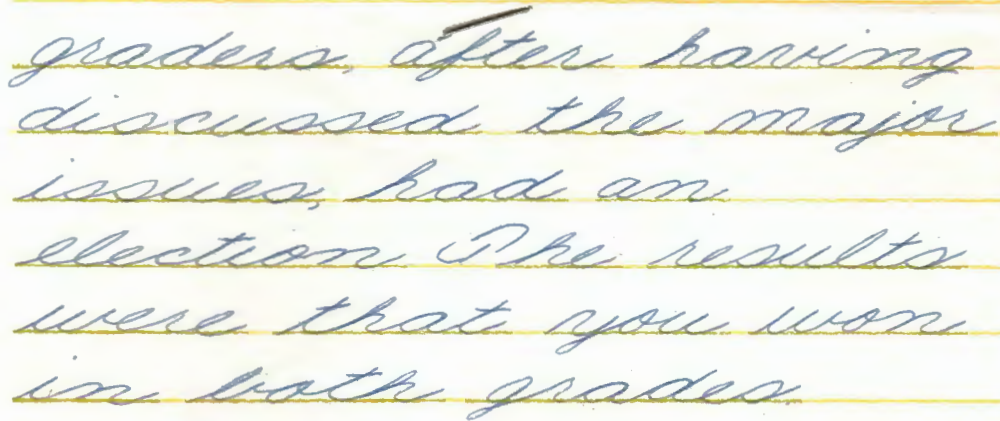 graders, after having
discussed the major
issues, had an
election. The results
were that you won
in both grades.